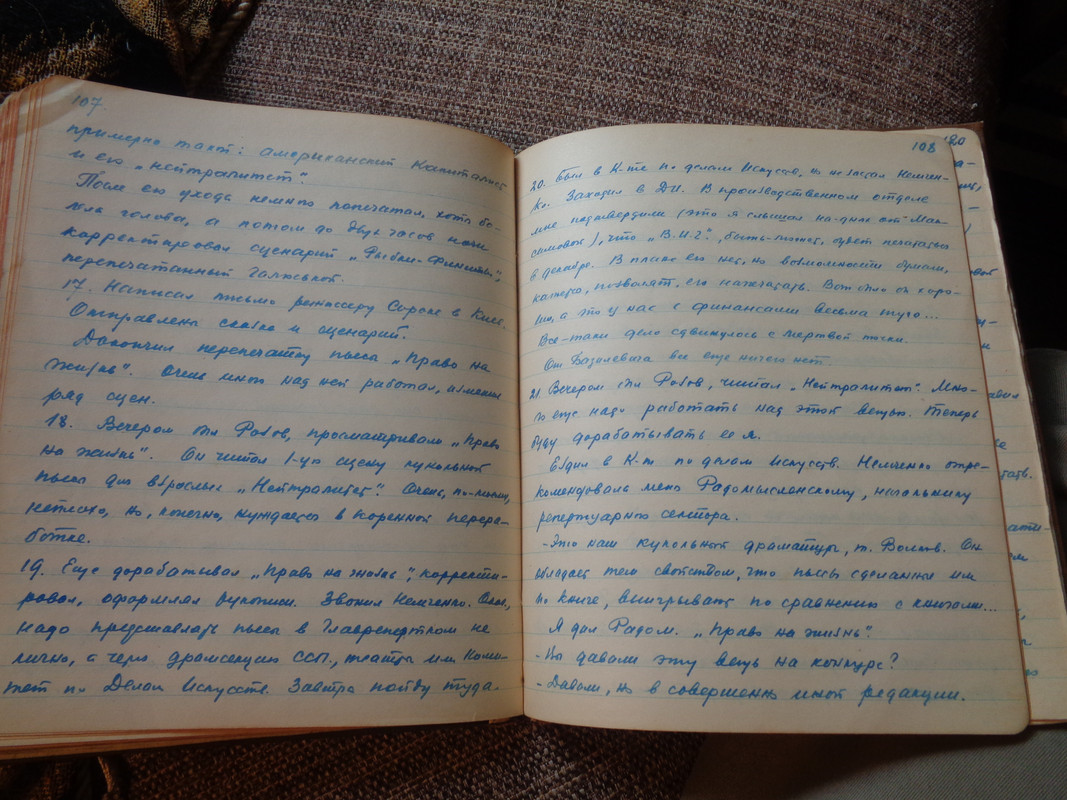 107.
примерно такой: американский капиталист
и его „нейтралитет".
После его ухода немного попечатал, хоть бо-
лела голова, а потом до двух часов ночи
корректировал сценарий „Рыбки-Финиты",
перепечатанный Галюськой.
17. Написал письмо режиссеру Сороке в Киев.
Отправлена сказка и сценарий.
Докончил перепечатку пьесы „Право на
жизнь". Очень много над ней работал, изменил
ряд сцен.
18. Вечером был Розов, просматривали „Право
на жизнь". Он читал 1-ую сцену кукольной
пьесы для взрослых „Нейтралитет". Очень, по-моему,
неплохо, но, конечно, нуждается в коренной перера-
ботке.
19. Еще дорабатывал „Право на жизнь", корректи-
ровал, оформлял рукописи. Звонил Немченко. Оказ.,
надо представлять пьесы в Главрепертком не
лично, а через драмсекцию ССП, театр или Коми-
тет по Делам Искусств. Завтра пойду туда.
108
20. Был в К-те по делам Искусств, но не застал Немчен-
ко. Заходил в ДИ. В производственном отделе
мне подтвердили (это я слышал на-днях от Мак-
симовой), что „В.и Ч.", быть-может, будет печататься
в декабре. В плане его нет, но возможности бумаги,
кажется, позволят его напечатать. Вот было бы хоро-
шо, а то у нас с финансами весьма туго...
Все-таки дело сдвинулось с мертвой точки.
От Базилевича все еще ничего нет.
21. Вечером был Розов, читал „Нейтралитет". Мно-
го еще надо работать над этой вещью. Теперь
буду дорабатывать ее я.
Ездил в К-т по делам Искусств. Немченко отре-
комендовал меня Радомысленскому, начальнику
репертуарного сектора.
-Это наш кукольный драматург, т. Волков. Он
обладает тем свойством, что пьесы сделанные им
по книге, выигрывают по сравнению с книгами...
Я дал Радом. „Право на жизнь".
-Вы давали эту вещь на конкурс?
-Давали, но в совершенно иной редакции.
120